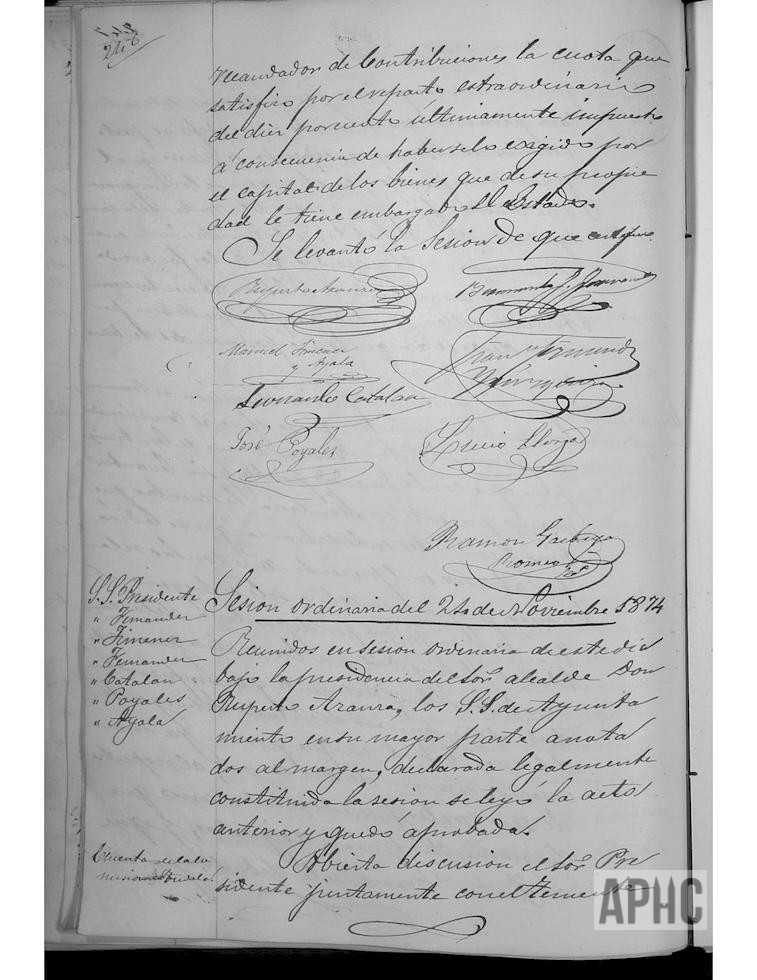 recaudador de Contribuciones la cuota que
satisfizo por el reparto estraordinario
del diez por ciento últimamente impuesto
á consecuencia de haberselo exigido por
el capital de los bienes que de su propie
dad le tiene embargados el Estado.
Se levantó la Sesion de que certifico.
Ruperto Azanza
Manuel Jimenez
y Ayala
Fernando Catalan
José Poyales
Lucio Llorza
Ramon
Romeo
S.S. Presidente
" Fernandez
" Jimenez
" Fernandez
" Catalan
" Poyales
" Ayala
Sesion ordinaria del 24 de Noviembre 1874
Reunidos en sesion ordinaria de este dia
bajo la presidencia del Sor. alcalde Don
Ruperto Azanza, los S.S. de Ayunta
miento en su mayor parte anota
dos al margen, declarada legalmente
constituida la sesion se leyó la acta
anterior y quedó aprobada.
Cuenta de la co
mision
Abierta discusion el Sor. Pre
sidente juntamente con el Teniente
APHC